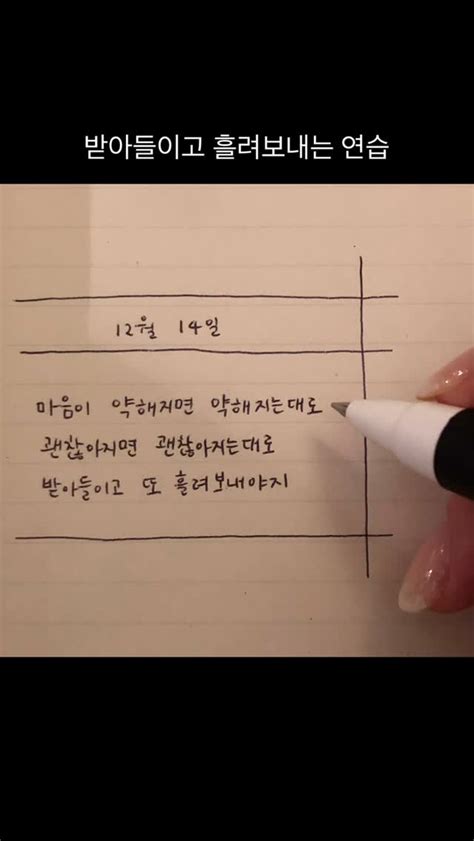 받아들이고 흘려보내는 연습
12월 14일
마음이 약해지면 약해지는대로
괜찮아지면 괜찮아지는대로
받아들이고 또 흘려보내야지